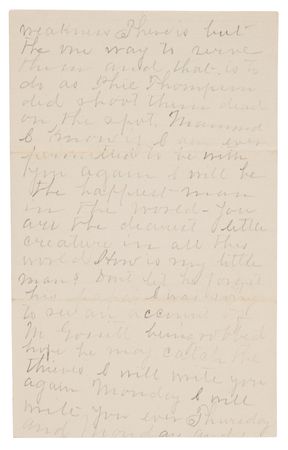 weakness There is but
the one way to serve
them and that is to
do as Phil Thompson
did shoot them dead
on the spot. Mamma
I know if I am ever
permitted to be with
you again I will be
the happiest man
in the world - You
are the dearest little
creature in all this
world How is my little
man? Dont let he forget
his papa I was sorry
to see an account of
M Gossett being robbed
hope he may catch the
thieves I will write you
again Monday I will
write you ever Thursday
and Monday and